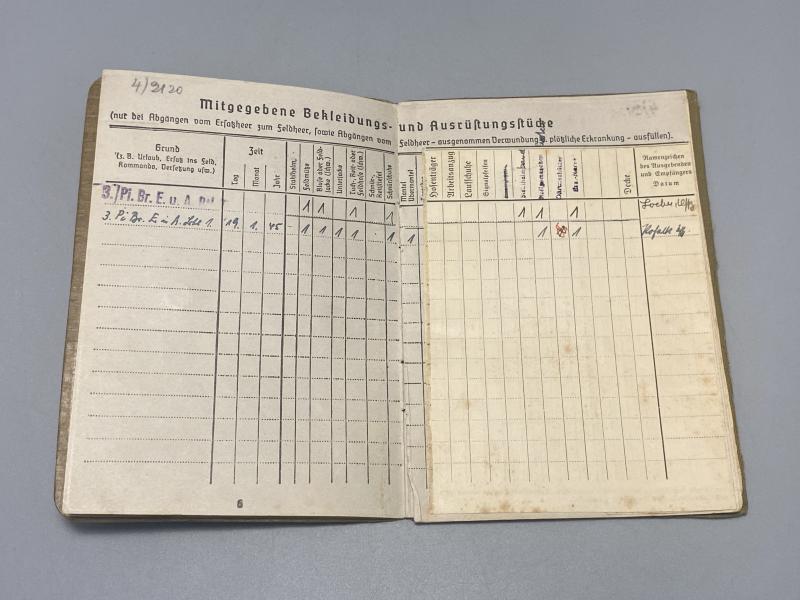 4/2120
Mitgegebene Bekleidungs- und Ausrüstungsstücke
(nur bei Abgängen vom Ersatzheer zum Feldheer, sowie Abgängen vom Feldheer – ausgenommen Verwundung, plötzliche Erkrankung – ausfüllen).
Grund
(z. B. Urlaub, Ersatz ins Feld,
Kommando, Versetzung usw.)
Zeit
Tag
Monat
Jahr
Stahlhelm
Feldmütze
Bluse oder Feld-
jacke (Schw.)
Unterjacke
Tuch-, Reit- oder
Feldhose (Schw.)
Schnürschuhe
Mantel
Übermantel
Hosenträger
Arbeitsanzug
Laufschuhe
Signalpfeifen
Decke
Namenzeichen
des Ausgebenden
und Empfängers
Datum
3./Pi. Br. E. u. A. 1 1 1 1 1 1 1
3. Pi. Br. E. u. A. 1. 19. 1. 45 - 1 1 1 1 1 1 1 1
6